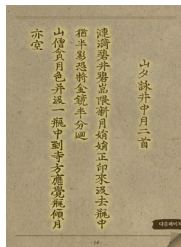 山夕詠井中月二首
漣漪碧井碧嵓隈新月娟娟正印來汲去甁中
猶半影恐將金鏡半分廻
山僧貪月色幷汲一甁中到寺方應覺甁傾月
亦空
다음페이지